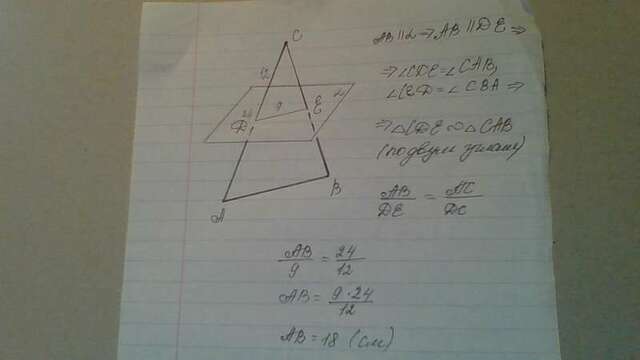 C
12
α
9
E
D
B
A
AB || α ⇒ AB || DE ⇒
⇒ ∠CDE = ∠CAB,
∠CED = ∠CBA ⇒
⇒ △CDE ∾ △CAB
(по двум углам)
AB/DE = AC/DC
AB/9 = 24/12
AB = 9·24/12
AB = 18 (см)